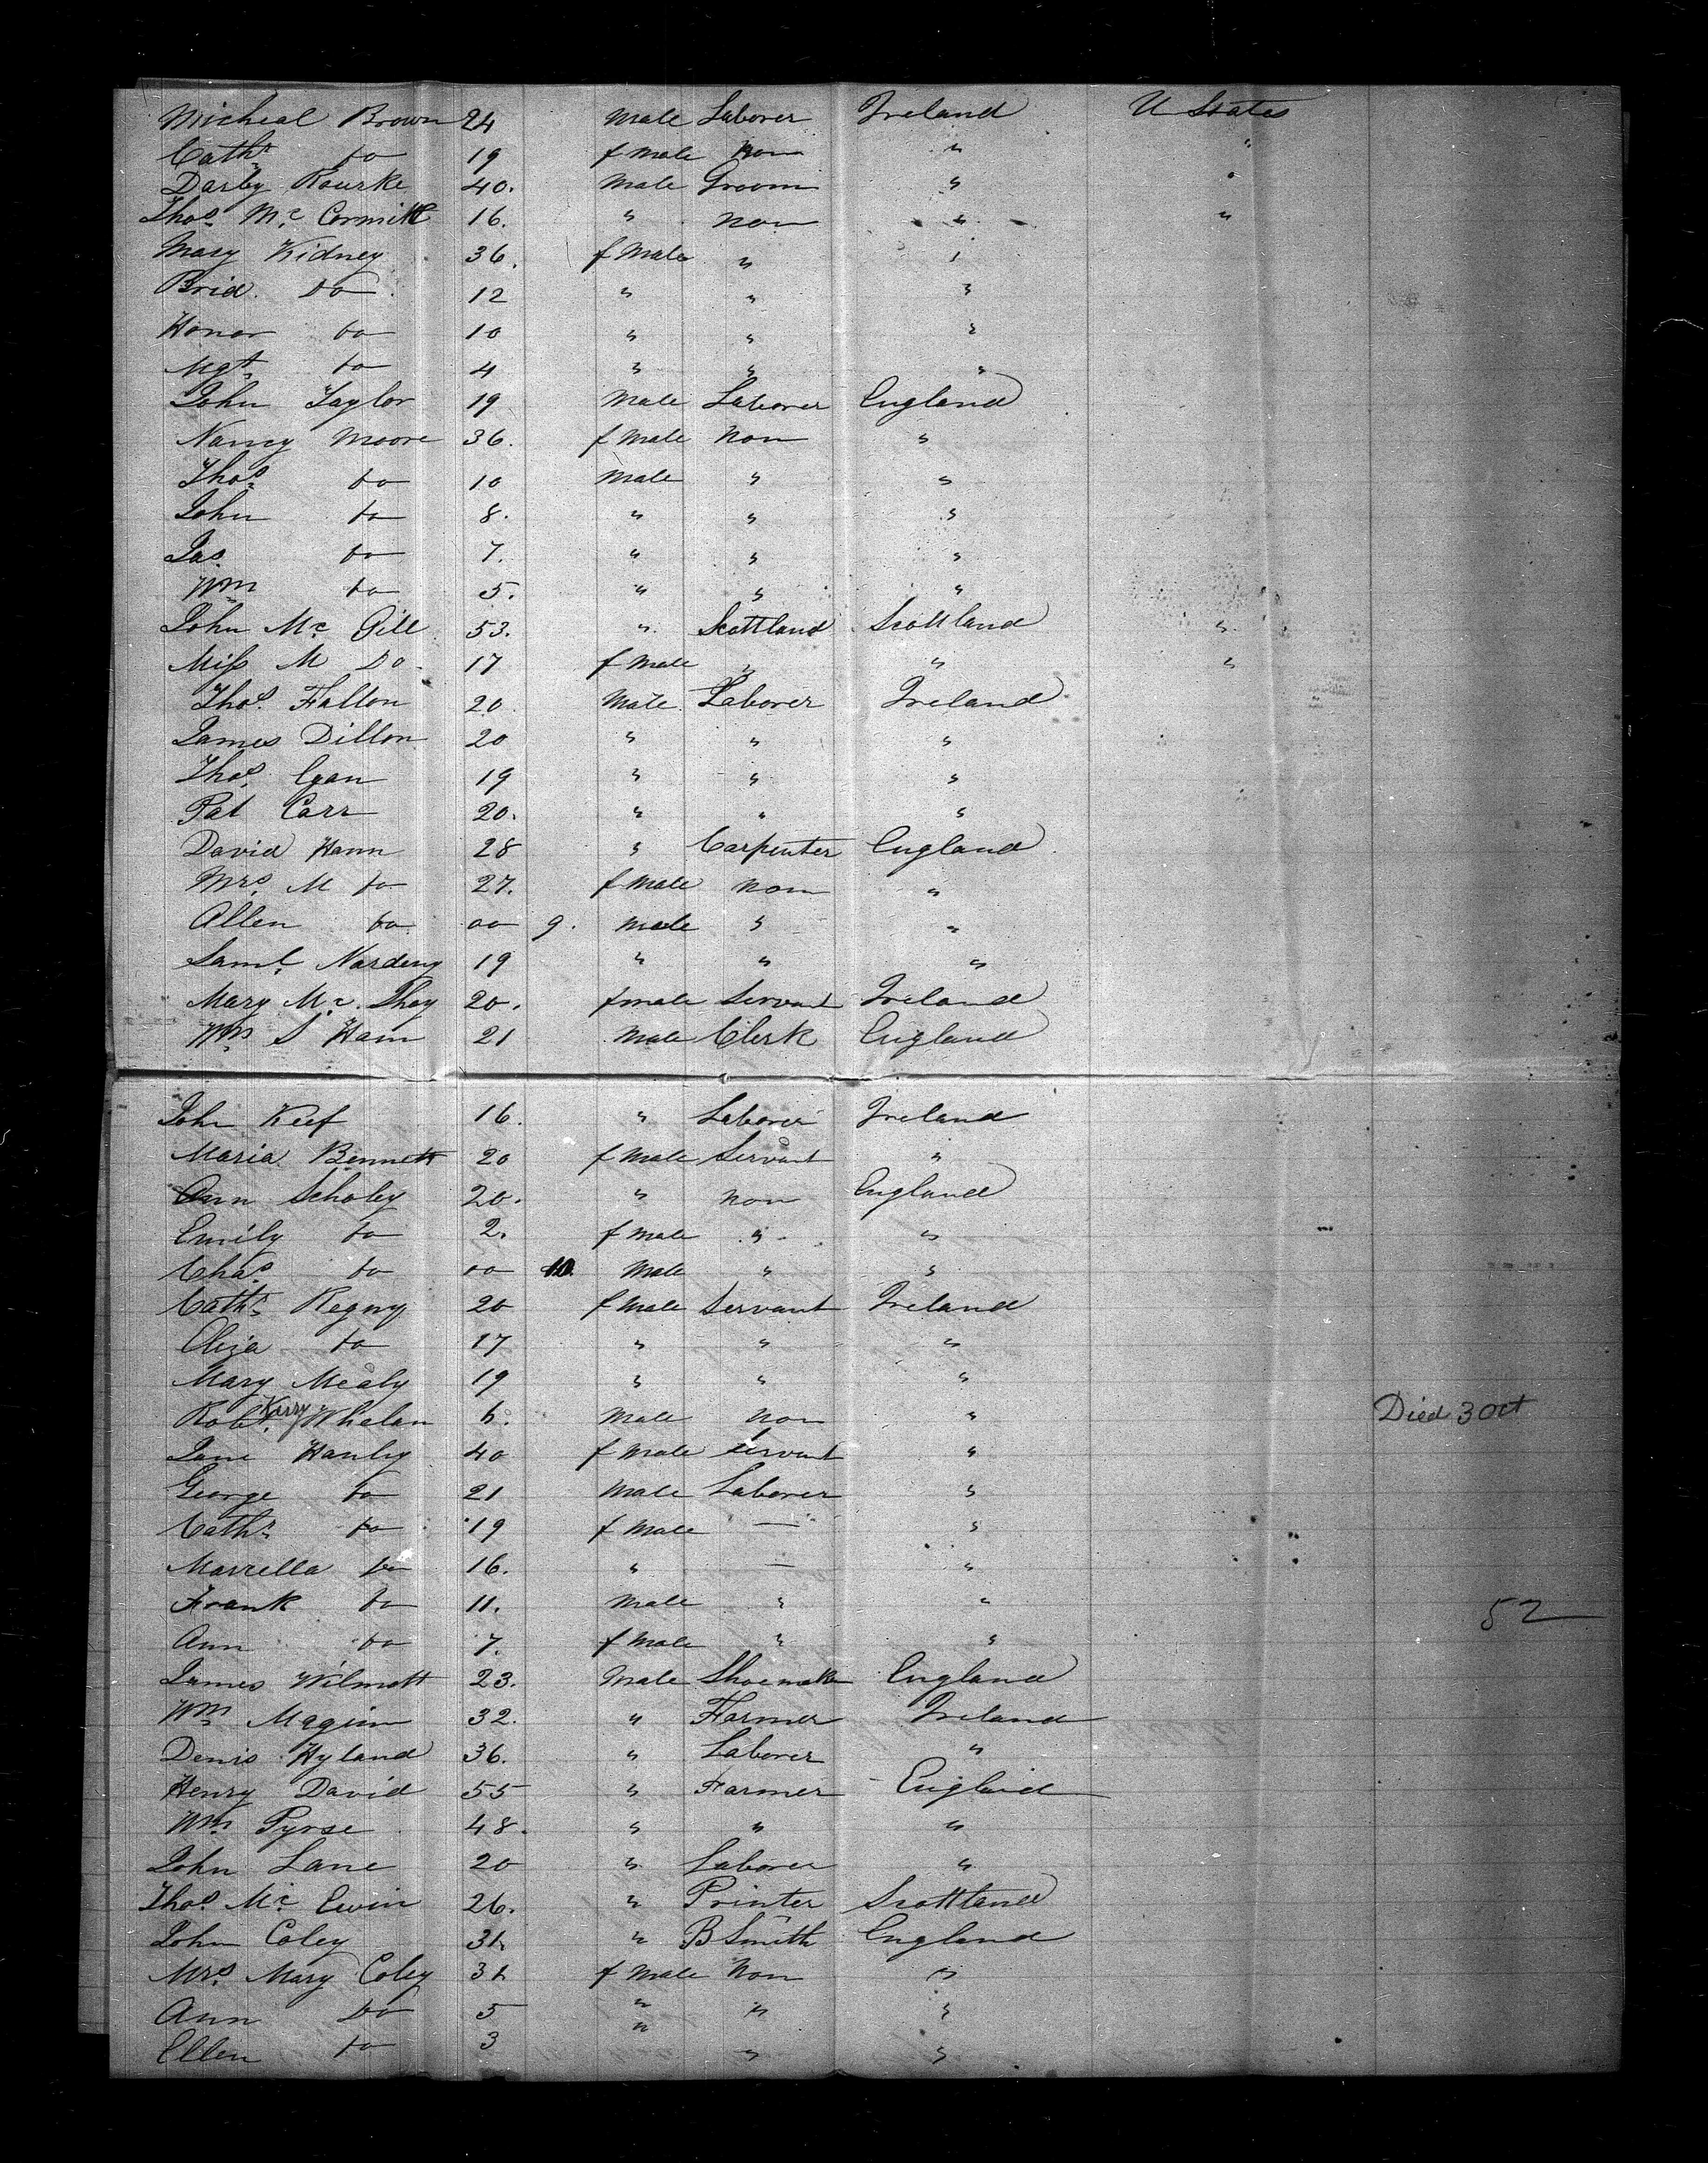 Micheal Brown 24 Male Laborer Ireland U States
Cathr do 19 f Male Non " "
Darby Rourke 40. Male Groom " "
Thos. Mc Cormitt 16. " non " "
Mary Kidney 36. f Male " "
Brid. do 12 " " "
Honor do 10 " " "
Mgt do 4 " " "
John Taylor 19 Male Laborer England
Nancy Moore 36. f Male Non "
Thos. do 10 Male " "
John do 8. " " "
Jas. do 7. " " "
Wm do 5. " " "
John Mc Gill 53. " Scottland Scottland "
Miss M Do. 17 f Male " " "
Thos. Fallon 20 Male Laborer Ireland
James Dillon 20 " " "
Thos. Egan 19 " " "
Pat Carr 20. " " "
David Hann 28 " Carpenter England
Mrs. M do 27. f Male Non "
Allen do 00 9. Male " "
Saml. 19 " " "
Mary Mc. Shey 20. f male Servant Ireland
Wm S Hann 21 Male Clerk England
John Keef 16. " Laborer Ireland
Maria Bennett 20 f Male Servant "
Ann Scholey 20. " Non England
Emily do 2. f Male " "
Chas. do 00 10. Male " "
Cathr 20 f Male Servant Ireland
Eliza do 17 " " "
Mary Mealy 19 " " "
Robt. Kerry Whelan 6. Male Non " Died 3 Oct
Jane Hanley 40 f Male Servant "
George do 21 Male Laborer "
Cathr do 19 f Male — "
Marcella do 16. " — "
Frank do 11. Male " " 52
Ann do 7. f Male " "
James Wilmott 23. Male Shoemaker England
Wm Maginn 32. " Farmer Ireland
Denis Hyland 36. " Laborer "
Henry David 55 " Farmer England
Wm. Pyrse 48. " " "
John Lane 20 " Laborer "
Thos. Mc Ewin 26. " Printer Scottland
John Coley 31 " B Smith England
Mrs. Mary Coley 31 f Male Non "
Ann Do 5 " " "
Ellen do 3 " " "